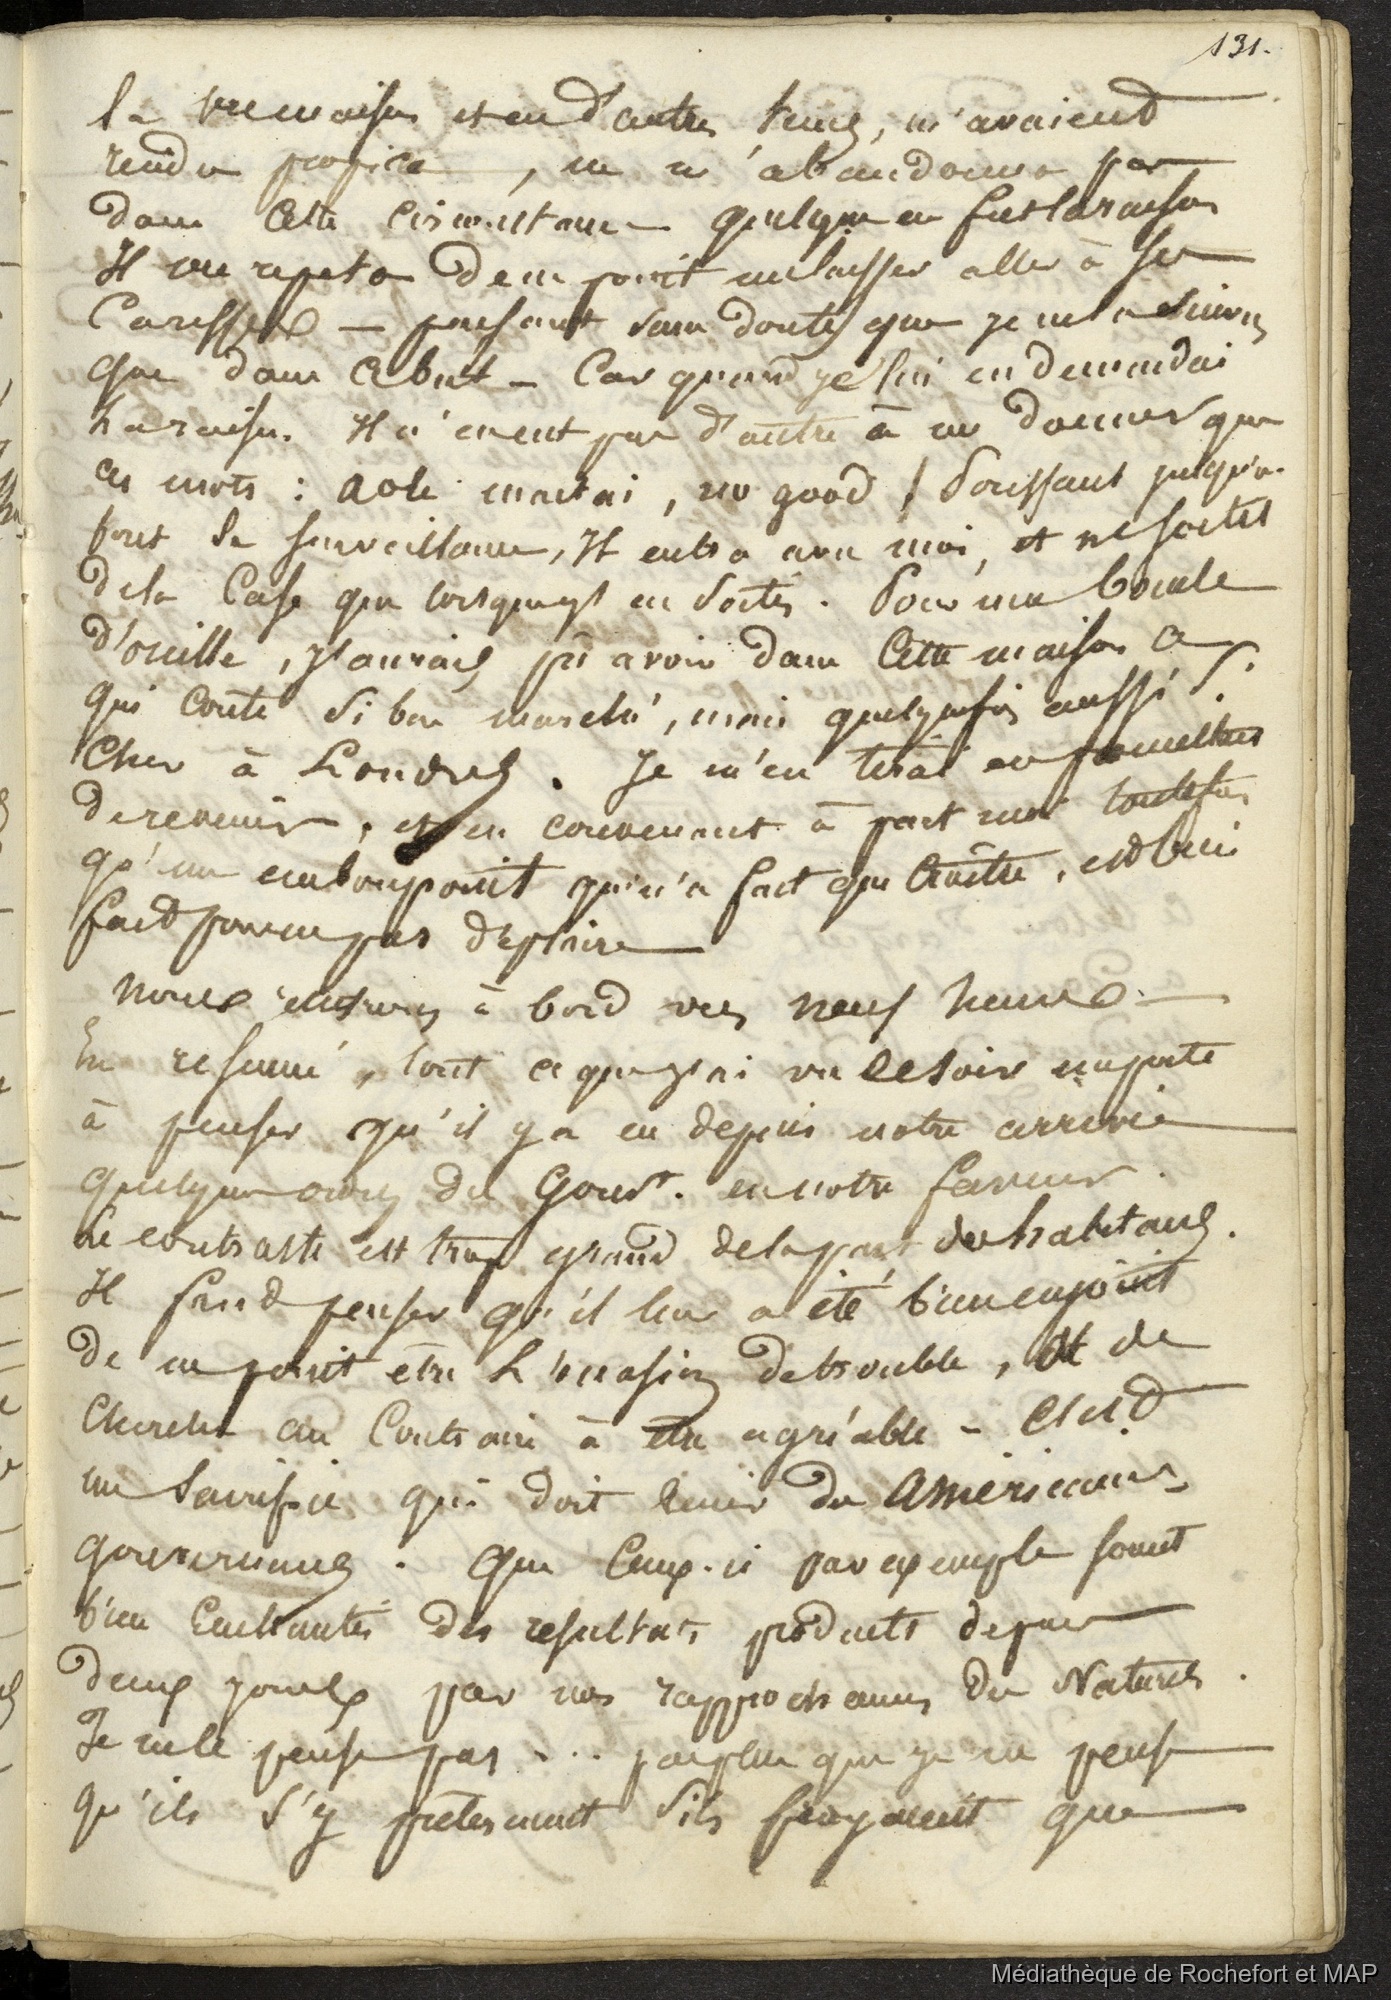 131.
la vue maison et en d'autres tems, m'avaient
rendu propice, ne m'abandonna pas
dans cette circonstance quelqu'en fut la raison
Il me repeta de ne point me laisser aller à ses
Caresses — pensant sans doute que je ne la suivais
que dans ce but – Car quand je lui en demandai
la raison. Il n'en eut pas d'autre à me donner que
ces mots : aole maitai, no good / Poussant jusqu'au
bout sa surveillance, Il entra avec moi, et ne sortit
de la Case que lorsque j'en sortis. Pour une boucle
d'oreille, j'aurais pû avoir dans Cette maison ce
qui coute si bon marché, mais quelquefois aussi si
Cher à Londres. Je m'en tirai en promettant
de revenir, et en convenant à part moi toutefois
qu'un embonpoint qui n'a fait que Croître, est bien
fait pour ne pas déplaire
Nous rentrons à bord vers neuf heures
En resumé, tout ce que j'ai vu ce soir me porte
à penser qu'il y a eu depuis notre arrivée
quelques ordres du Gouvt. en notre faveur.
Le contraste est trop grand de la part des habitans.
Il faut penser qu'il leur a été bien enjoint
de ne point être l'occasion de trouble, et de
Chercher au Contraire à être agréable – C'est
un Sacrifice qui doit venir des américains
gouvernans. Que Ceux-ci par exemple soient
bien Enchantés des resultats produits depuis
deux jours par nos rapprochemens des Naturels.
Je ne le pense pas ... pas plus que je ne pense
qu'ils s'y prêteraient s'ils croyaient que
Médiathèque de Rochefort et MAP